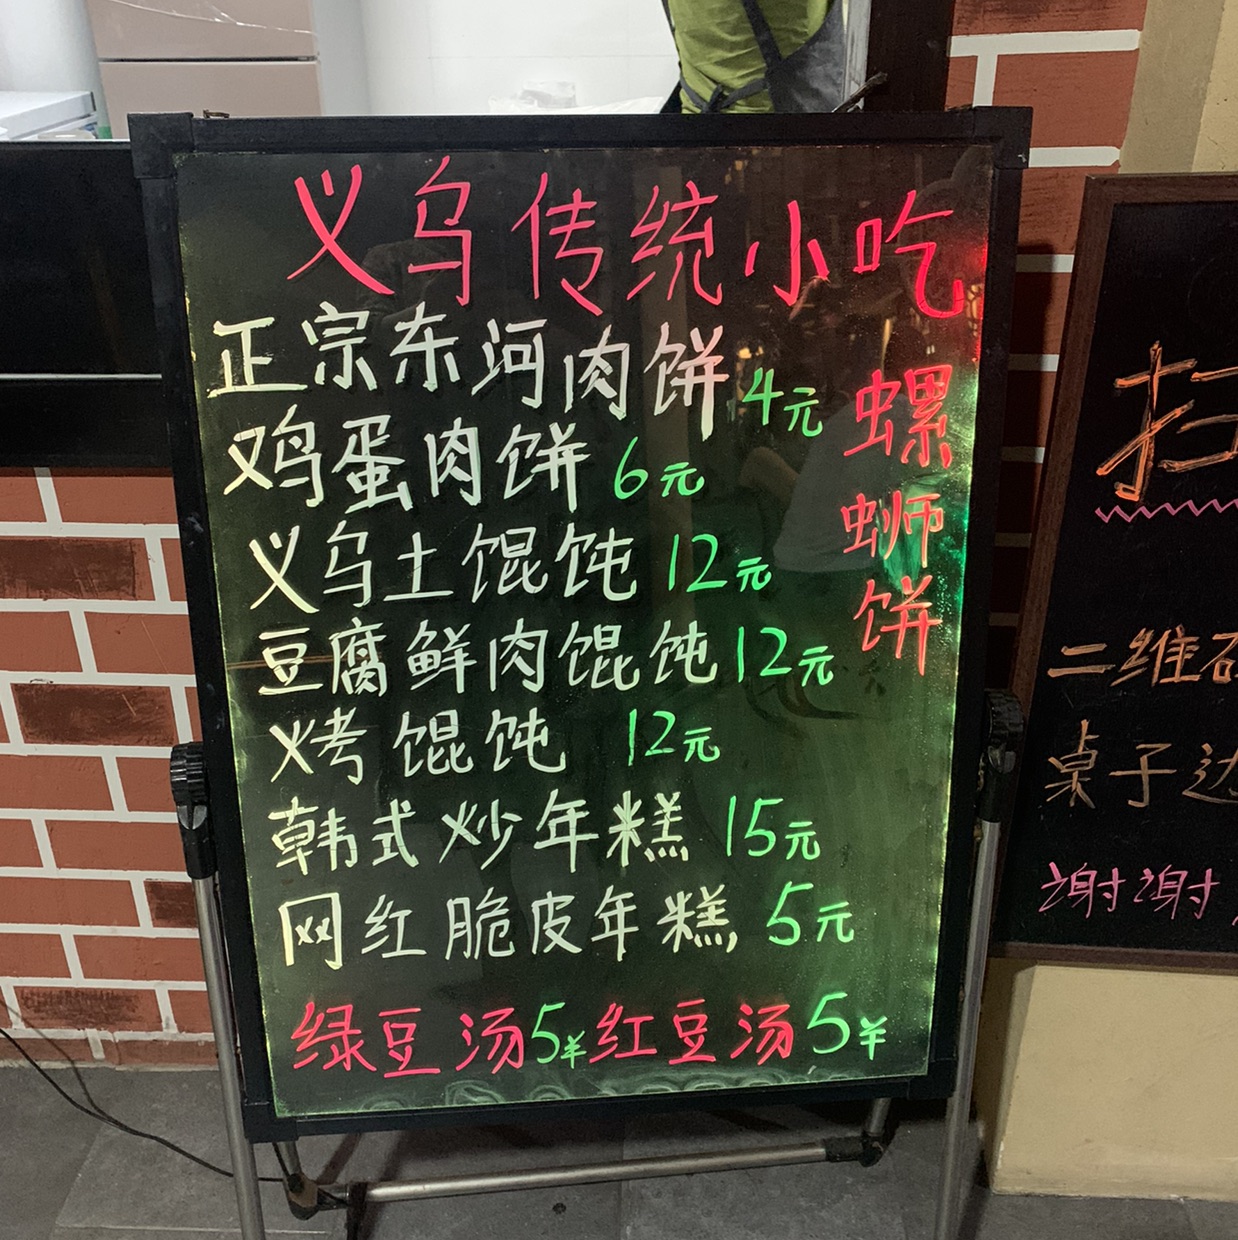 义乌传统小吃
正宗东河肉饼 4元
鸡蛋肉饼 6元
义乌土馄饨 12元
豆腐鲜肉馄饨 12元
火考 馄饨 12元
韩式炒年糕 15元
网红脆皮年糕 5元
绿豆汤5¥ 红豆汤5¥
螺
蛳
饼
扫
二维码
桌子边
谢谢